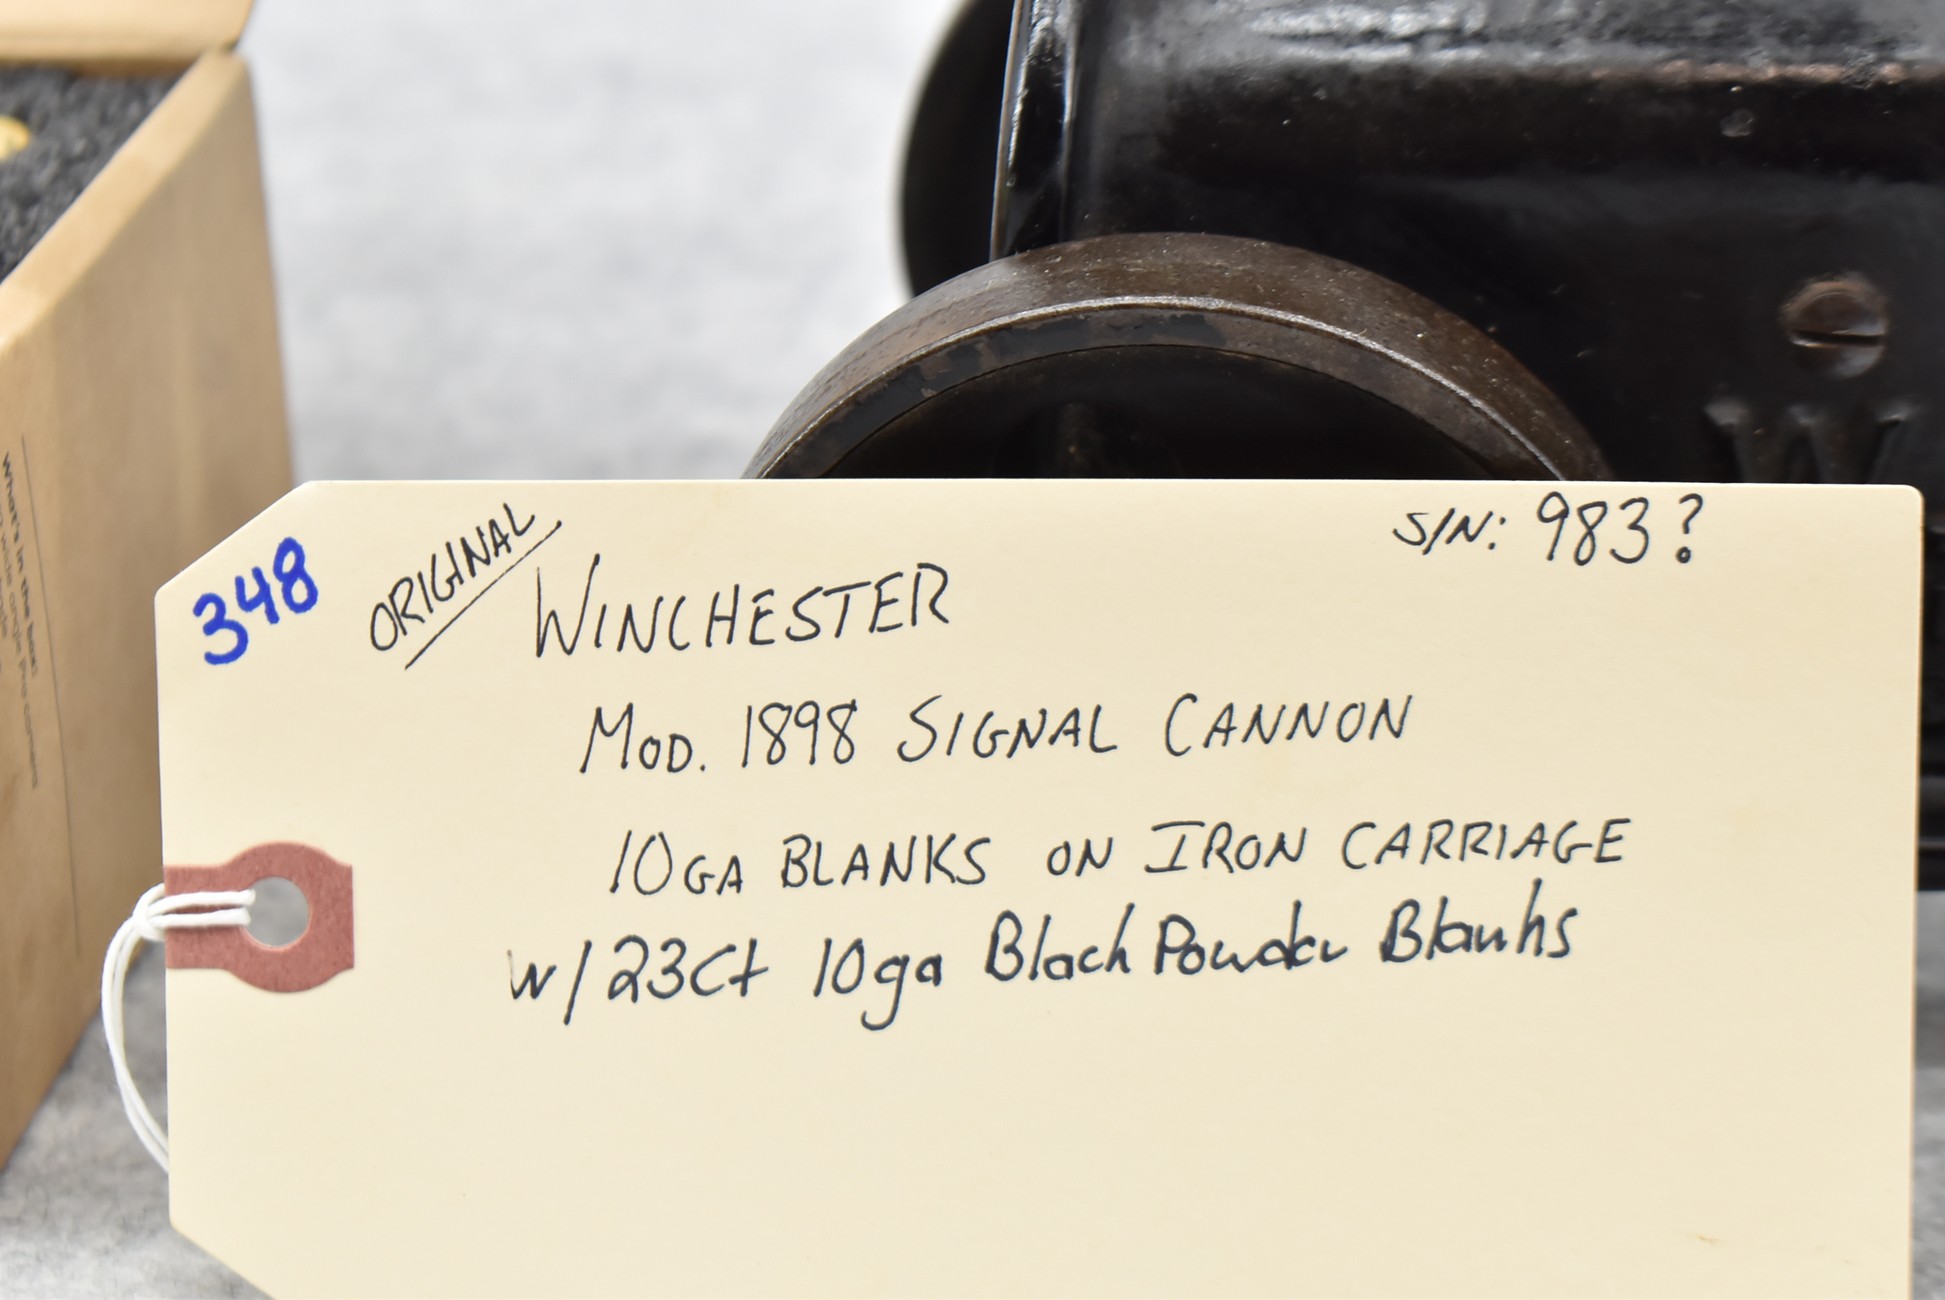 348
ORIGINAL
S/N: 983?
WINCHESTER
MOD. 1898 SIGNAL CANNON
10GA BLANKS ON IRON CARRIAGE
w/23Ct 10ga Black Powder Blanks
W
What's in the box: